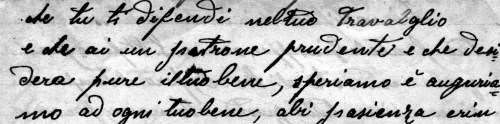 che tu ti difendi nel tuo travalglio
e che ai un patrone prudente e che desi
dera pure il tuo bene, speriamo è auguria
mo ad ogni tuo bene, abi pasienza erin